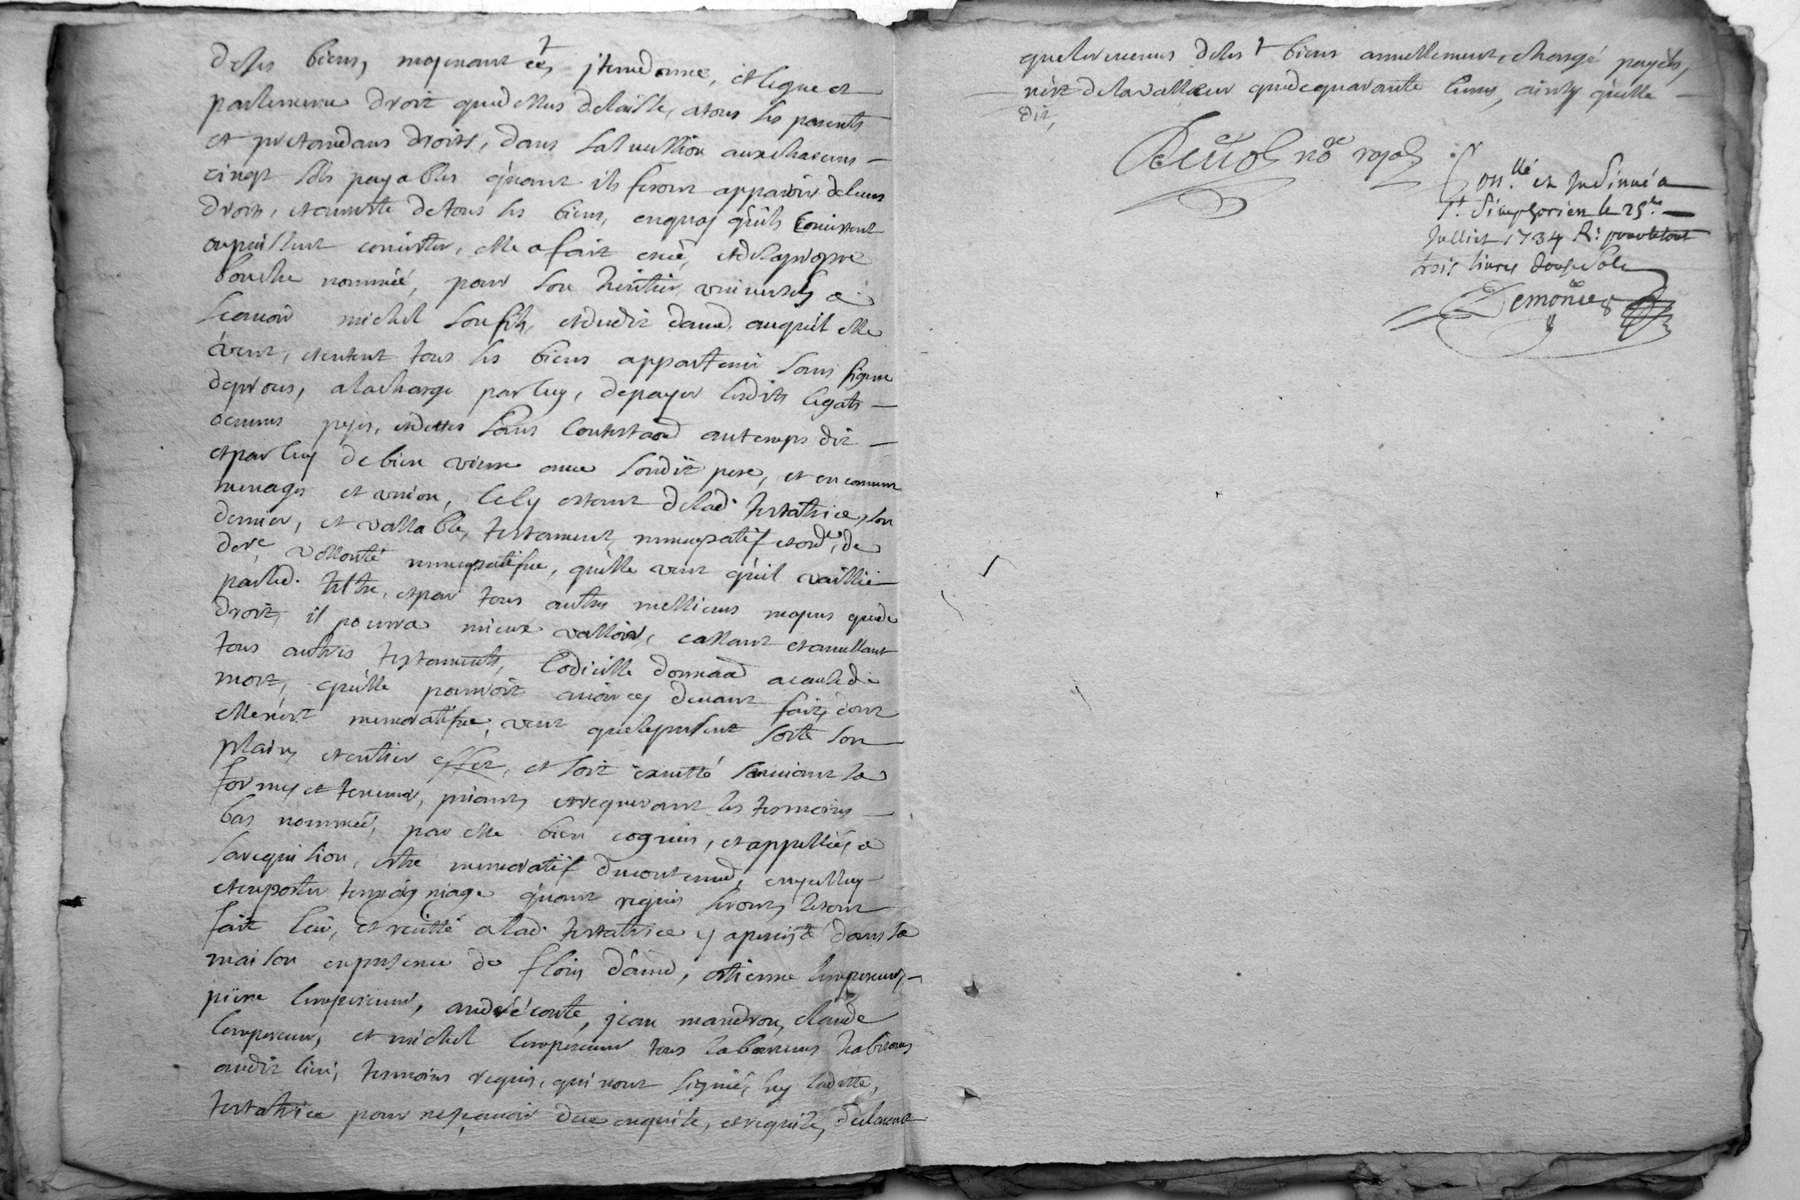 deses biens, moyenant ce, j tem donne, et legue et
par lememe droit que dessus delaisse, a tous ses parents
et pretendans droits, dans sa sucession aux chacuns
cinq sols payables quant ils feront apparoir de leurs
droits, et au reste de tous ses biens, en quoy quils consistent
ou puissent consister, elle a fait cree, et de sa propre
bouche nommée, pour son heritier universel a
scavoir michel son fils, et dudit daud, auquel elle
veut, et entent tous ses biens appartenir sans figure
de proces, a la charge par luy, de payer lesdits legats
oeuvres pyes, et dettes sans contestaõn au temps dit
et par luy de bien vivre avec son dit pere, et en comun
menages et union, cely estant de lad. testatrice, son
dernier, et vallable, testament nuncupatif et ordre, de
dere volonté nuncupatifve, quelle veut quil vaillie
par led. tiltre, et par tous autres mellieurs moyens que de
droit, il pourra mieux valloir, cassant et anullant
tous autres testaments, codicille donnaõn a cause de
mort, quelle pouvoit avoir cy devant fait, dont
elle n'est memoratifve, veut que le present sorte son
plain, et entier effet, et soit executté suivant sa
forme et teneur, priant, et requerant les tesmoins
bas nommés, par elle bien cognus, et appellés a
sa requisition, estre memoratif du contenu, en yceluy
et en porter temoigniage quant requis seront, lesant
fait leu, et recitté a lad. testatrice y aperisté dans sa
maison en presence de floris daud, estienne lempereur,
pierre lempereur, andré conte, jean mandron, claude
lempereur, et michel lempereur tous laboureurs habitans
audit lieu, tesmoins requis, qui n'ont signé, ny ladite,
testatrice pour ne sçavoir de ce enquis, et requis, declarant
que les revenus de ses biens annuellement, chargé payés,
n'est de la valleur que de quarante livres, ainsy quelle
dit,
nore royal
Conllé et Insinué a
St. Simphorien le 25e
Julliet 1734 R. pour le tout
trois livres douze sols
Demonceo